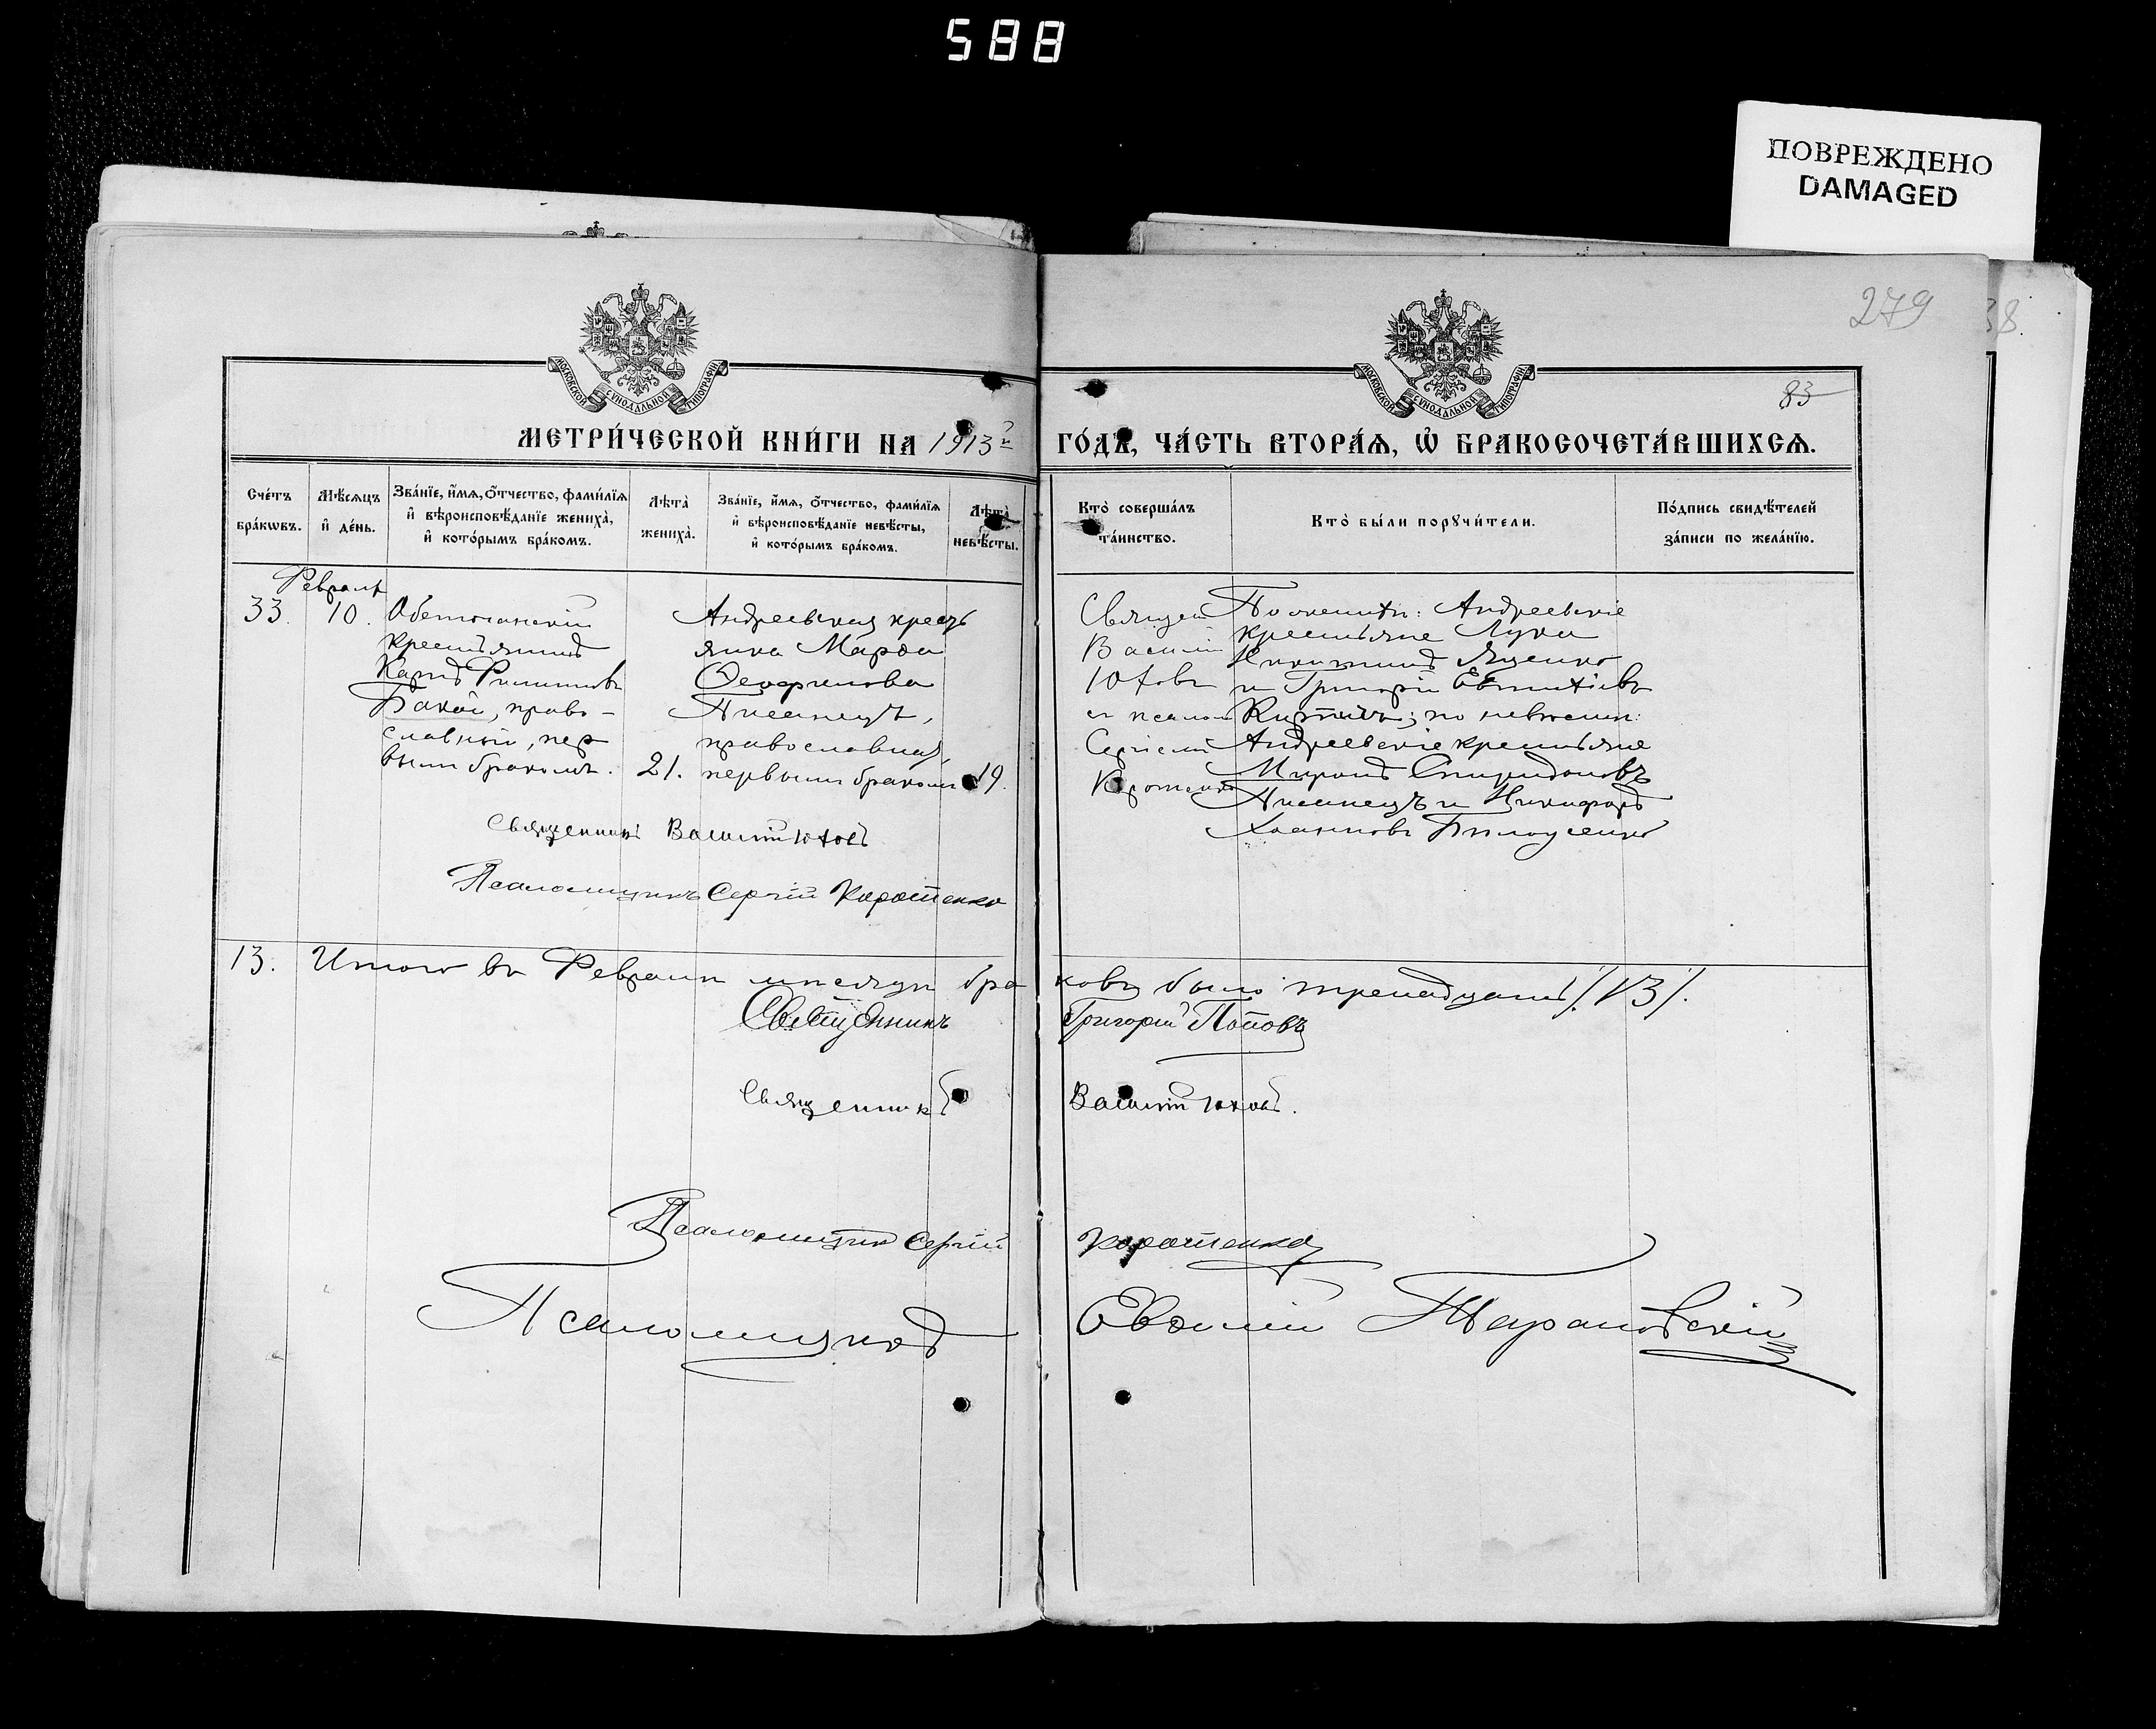 588
ПОВРЕЖДЕНО
DAMAGED
279
38.
83
МОСКОВСКОЙ СѴНОДАЛЬНОЙ ТИПОГРАФІИ
МОСКОВСКОЙ СѴНОДАЛЬНОЙ ТИПОГРАФІИ
МЕТРИ́ЧЕСКОЙ КНИ́ГИ НА 1913 й
ГО́ДЪ, ЧА́СТЬ ВТОРА́Ѧ, Ѽ БРАКОСОЧЕТА́ВШИХСѦ.
Сче́тъ бра́кѡвъ.
Мѣ́сѧцъ и҆ де́нь.
Зва́нїе, и҆́мѧ, ѻ҆́тчество, фами́лїѧ и҆ вѣроисповѣ́данїе жениха̀, и҆ кото́рымъ бра́комъ.
Лѣ́та̀ жениха̀.
Зва́нїе, и҆́мѧ, ѻ҆́тчество, фами́лїѧ и҆ вѣроисповѣ́данїе невѣ́сты, и҆ кото́рымъ бра́комъ.
Лѣ́та̀ невѣ́сты.
Кто̀ соверша́лъ та́инство.
Кто̀ бы́ли порꙋчи́тели.
По́дпись свидѣ́телей за́писи по жела́нїю.
Февраль
33. 10.
крестьянинъ
Карпъ Филиповъ
Бакай, право-
славный, пер
вымъ бракомъ. 21.
Андреевская кресть
янка Марѳа
Ѳеофилова
Писанецъ,
православная,
первымъ бракомъ 19.
Священ
Василій
Юховъ
съ псалом
Сергіемъ
Коротенко
По женихѣ: Андреевскіе
крестьяне Лука
Никитинъ Яценко
и Григорій Евтихіевъ
по невѣстѣ:
Андреевскіе крестьяне
Миронъ Спиридоновъ
Писанецъ и Никифоръ
Священникъ Василій Юховъ
Псаломщикъ Сергій Коротенко
13. Итого въ Февралѣ мѣсяцѣ бра
ковъ было тринадцать /13/.
Священникъ Григорій Поповъ
Священникъ Василій Юховъ.
Псаломщик Сергій Коротенко
Псаломщикъ Евѳимій Тарановскій